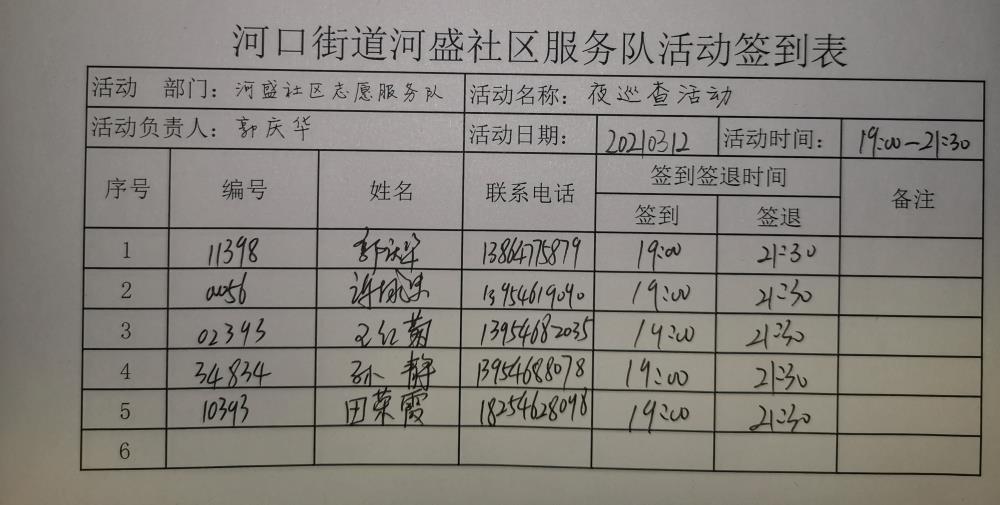 河口街道河盛社区服务队活动签到表
活动 部门：河盛社区志愿服务队 活动名称：夜巡查活动
活动负责人：郭庆华 活动日期： 20210312 活动时间： 19:00-21:30
序号 编号 姓名 联系电话 签到签退时间 备注
签到 签退
1 11398 郭庆华 13864775879 19:00 21:30
2 0056 许 13954619090 19:00 21:30
3 02393 王红菊 13954682035 19:00 21:30
4 34834 孙静 13954688078 19:00 21:30
5 10393 田荣霞 18254628098 19:00 21:30
6